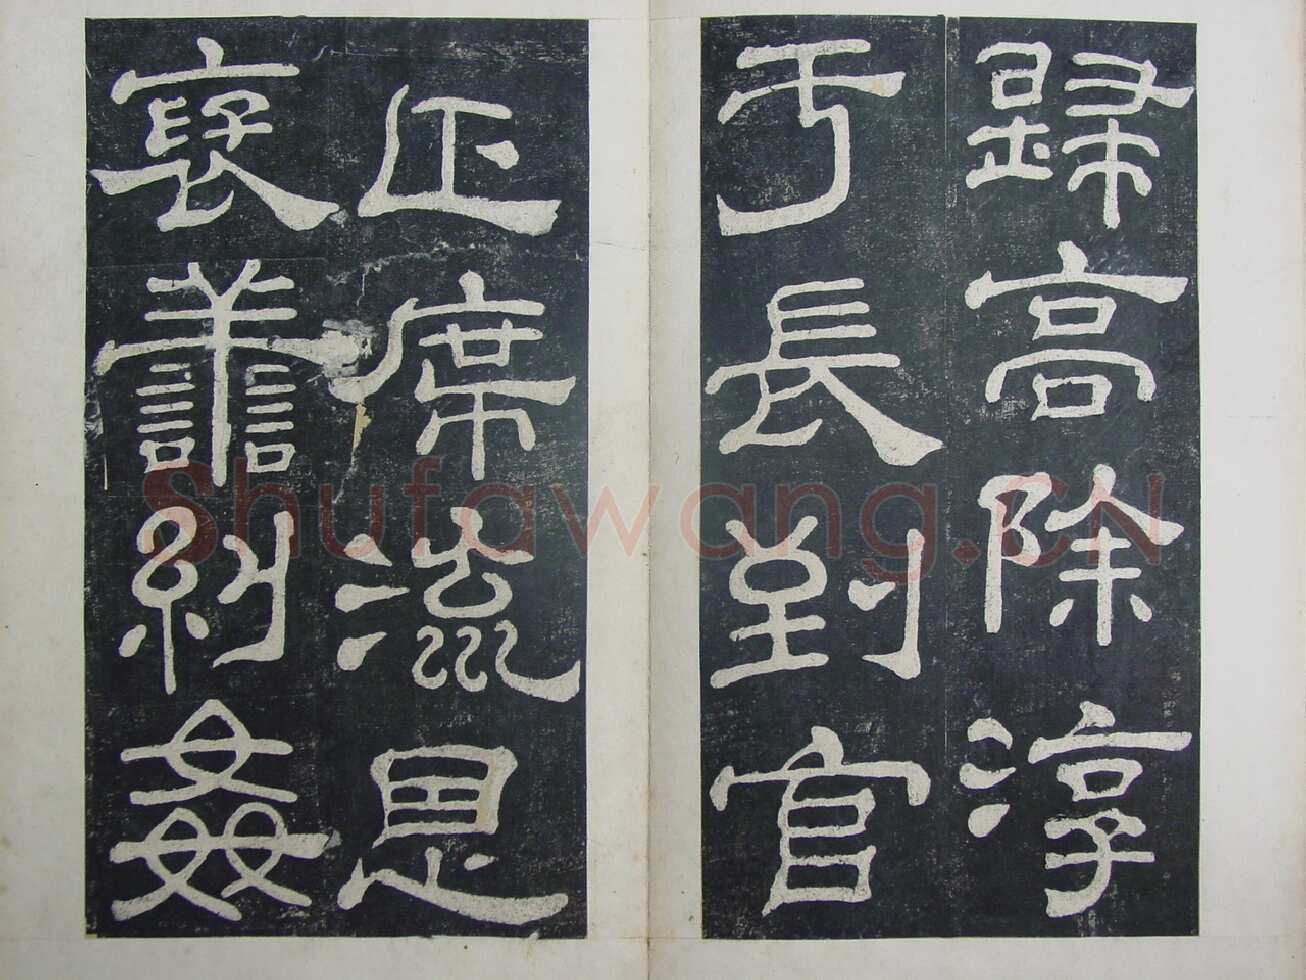 歸高除淳
于長到官
正席流恩
褒譱糾姦
Shufawang.CN